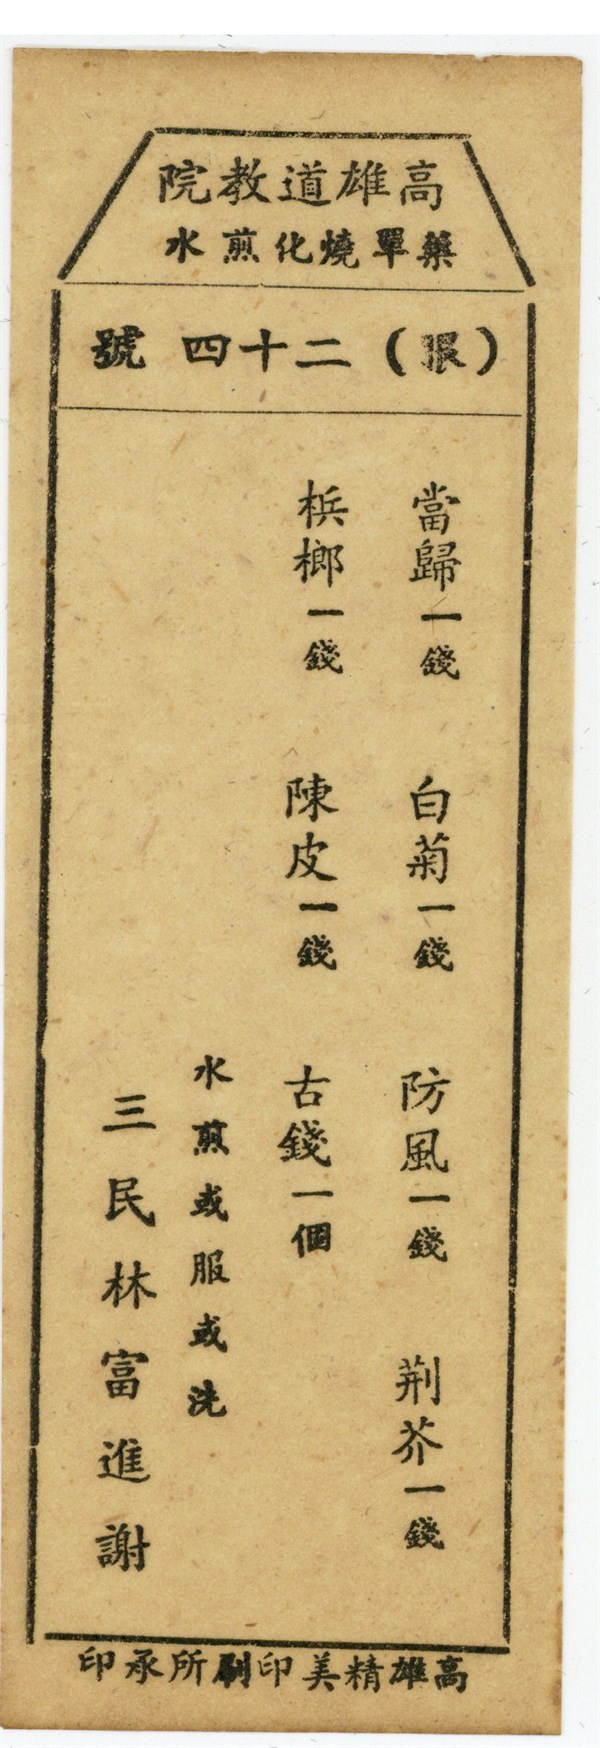 高雄道教院
藥單燒化煎水
（眼）二十四號
當歸一錢 白菊一錢 防風一錢 荆芥一錢
梹榔一錢 陳皮一錢 古錢一個
水煎或服或洗
三民林富進謝
高雄精美印刷所承印